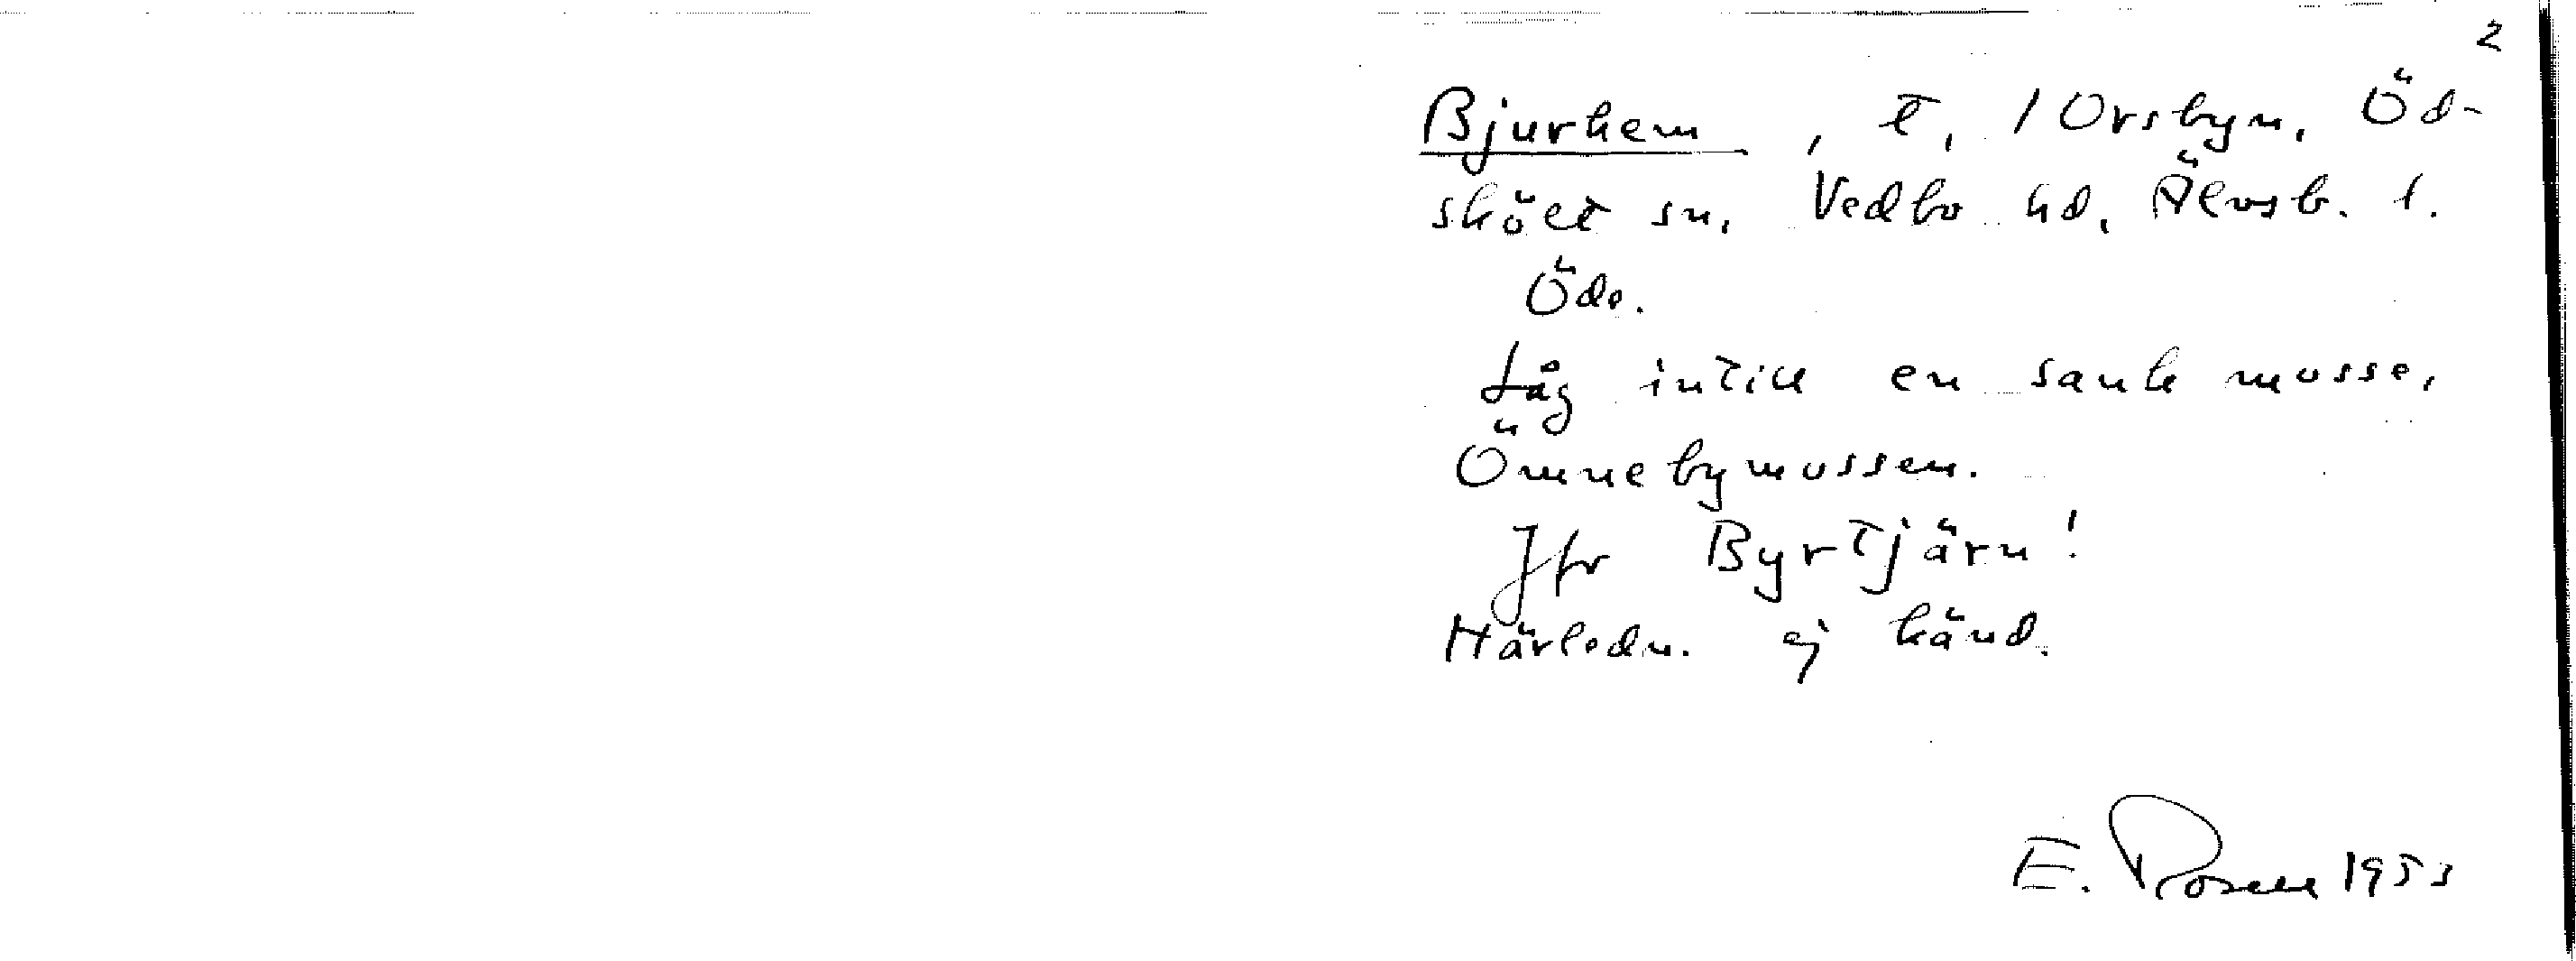 2
Bjurhem, t, 1 Orsbyn, Öd-
skölt sn, Vedbo hd, Älvsb. l.
Öde.
Låg intill en sank mosse,
Ömnebymossen.
Jfr Byrtjärn!
Härledn. ej känd.
E. Rosell 1953